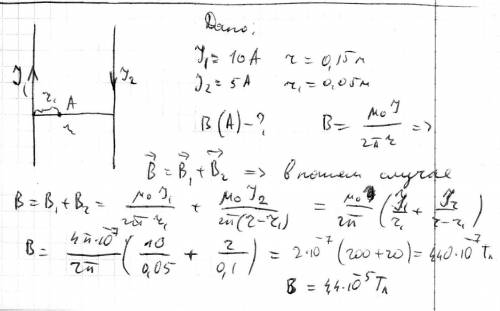 Дано:
J₁ = 10 А   r = 0,15 м
J₂ = 5 А   r₁ = 0,05 м
B(A) - ?   B = μ₀J / 2πr =>
J₁   r₁   A   r   J₂
B⃗ = B⃗₁ + B⃗₂ => в нашем случае
B = B₁ + B₂ = μ₀J₁ / 2πr₁ + μ₀J₂ / 2π(r - r₁) = μ₀ / 2π (J₁ / r₁ + J₂ / r - r₁)
B = 4π·10⁻⁷ / 2π (10 / 0,05 + 2 / 0,1) = 2·10⁻⁷ (200 + 20) = 440·10⁻⁷ Тл
B = 4,4·10⁻⁵ Тл